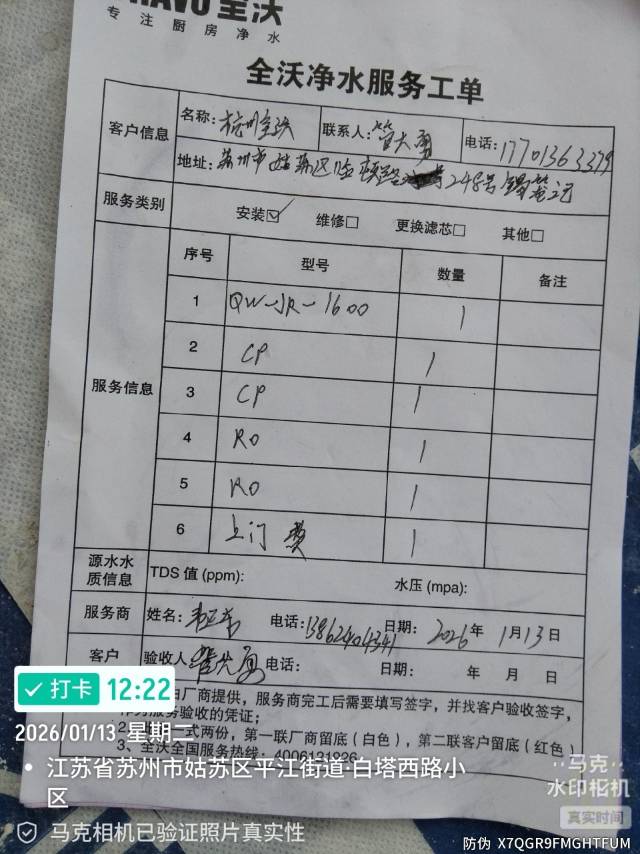 RAVO全沃
专注厨房净水
全沃净水服务工单
客户信息
名称：杭州全沃
联系人：管大勇
电话：17701363379
地址：苏州市姑苏区临顿路248号
服务类别
安装☑ 维修□ 更换滤芯□ 其他□
服务信息
序号 型号 数量 备注
1 QW-JR-1600 1
2 CP 1
3 CP 1
4 RO 1
5 RO 1
6 上门费 1
源水水质信息
TDS 值 (ppm): 水压 (mpa):
服务商 姓名： 电话：13862404341 日期：2026年1月13日
客户 验收人 电话： 日期： 年 月 日
由厂商提供，服务商完工后需要填写签字，并找客户验收签字，
作为服务验收的凭证；
一式两份，第一联厂商留底（白色），第二联客户留底（红色）
3、全沃全国服务热线：4006121926
打卡 12:22
2026/01/13 星期二
江苏省苏州市姑苏区平江街道·白塔西路小区
马克相机已验证照片真实性
马克
水印相机
真实时间
防伪 X7QGR9FMGHTFUM